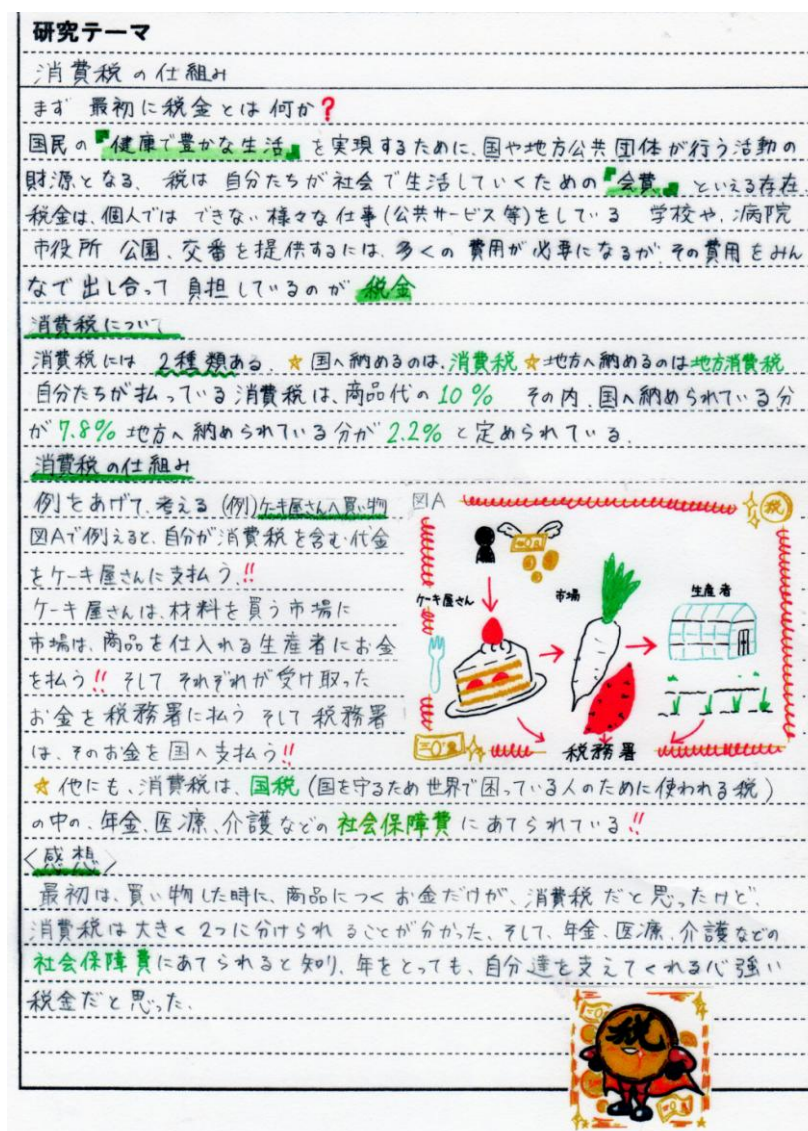 研究テーマ
消費税の仕組み
まず 最初に税金とは何か?
国民の『健康で豊かな生活』を実現するために、国や地方公共団体が行う活動の
財源となる、税は 自分たちが社会で生活していくための『会費』といえる存在
税金は、個人では できない様々な仕事(公共サービス等)をしている 学校や、病院
市役所 公園、交番を提供するには、多くの 費用が必要になるが その費用をみん
なで出し合って 負担しているのが 税金
消費税について
消費税には 2種類ある、☆国へ納めるのは、消費税☆地方へ納めるのは地方消費税
自分たちが払っている消費税は、商品代の10% その内、国へ納められている分
が7.8% 地方へ納められている分が2.2%と定められている、
消費税の仕組み
例をあげて、考える (例)ケーキ屋さんへ買い物
図Aで例えると、自分が消費税を含む代金
をケーキ屋さんに支払う!!
ケーキ屋さんは、材料を買う市場に
市場は、商品を仕入れる生産者にお金
を払う!! そして それぞれが受け取った
お金を税務署に払う そして税務署
は、そのお金を国へ支払う!!
図A
税
ケーキ屋さん
市場
生産者
税務署
☆他にも、消費税は、国税(国を守るため世界で困っている人のために使われる税)
の中の、年金、医療、介護などの社会保障費にあてられている!!
〈感想〉
最初は、買い物した時に、商品につくお金だけが、消費税だと思ったけど、
消費税は大きく2つに分けられることが分かった、そして、年金、医療、介護などの
社会保障費にあてられると知り、年をとっても、自分達を支えてくれる心強い
税金だと思った、
税